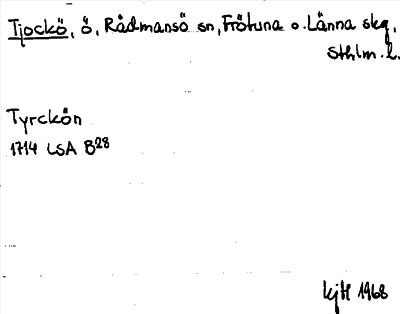 Tjockö, ö, Rådmansö sn, Frötuna o. Länna skg,
Sthlm. l.
Tyrckön
1714 LSA B28
kjH 1968